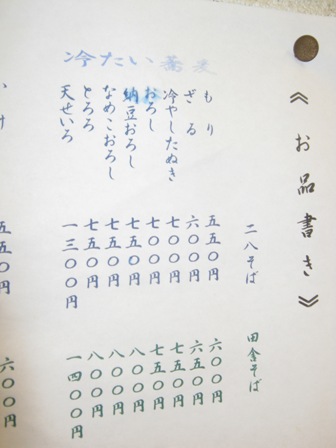 《お品書き》
冷たい蕎麦
もり
ざる
冷やしたぬき
おろし
納豆おろし
なめこおろし
とろろ
天せいろ
二八そば
五五〇円
六〇〇円
七〇〇円
七〇〇円
七五〇円
七五〇円
七五〇円
一三〇〇円
田舎そば
六〇〇円
六五〇円
七五〇円
七五〇円
八〇〇円
八〇〇円
八〇〇円
一四〇〇円
五五〇円
六〇〇円